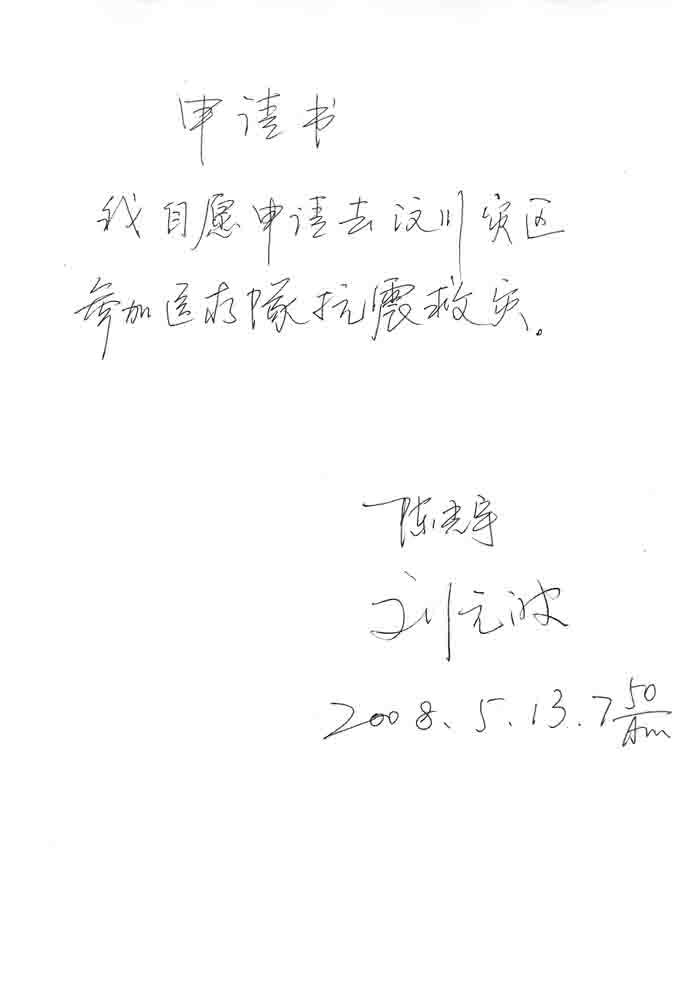 申请书
我自愿申请去汶川灾区
参加医疗队抗震救灾。
陈志宇
刘元波
2008.5.13.7 50/Am